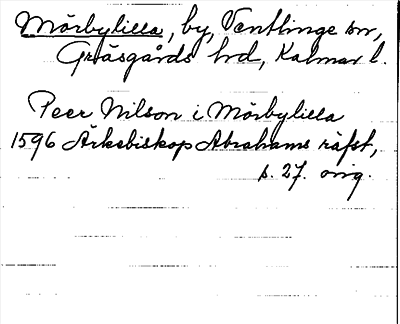 Mörbylilla, by, Ventlinge sn,
Gräsgårds hrd, Kalmar l.
Peer Nilson i Mörbylilla
1596 Ärkebiskop Abrahams räfst,
s. 27. orig.